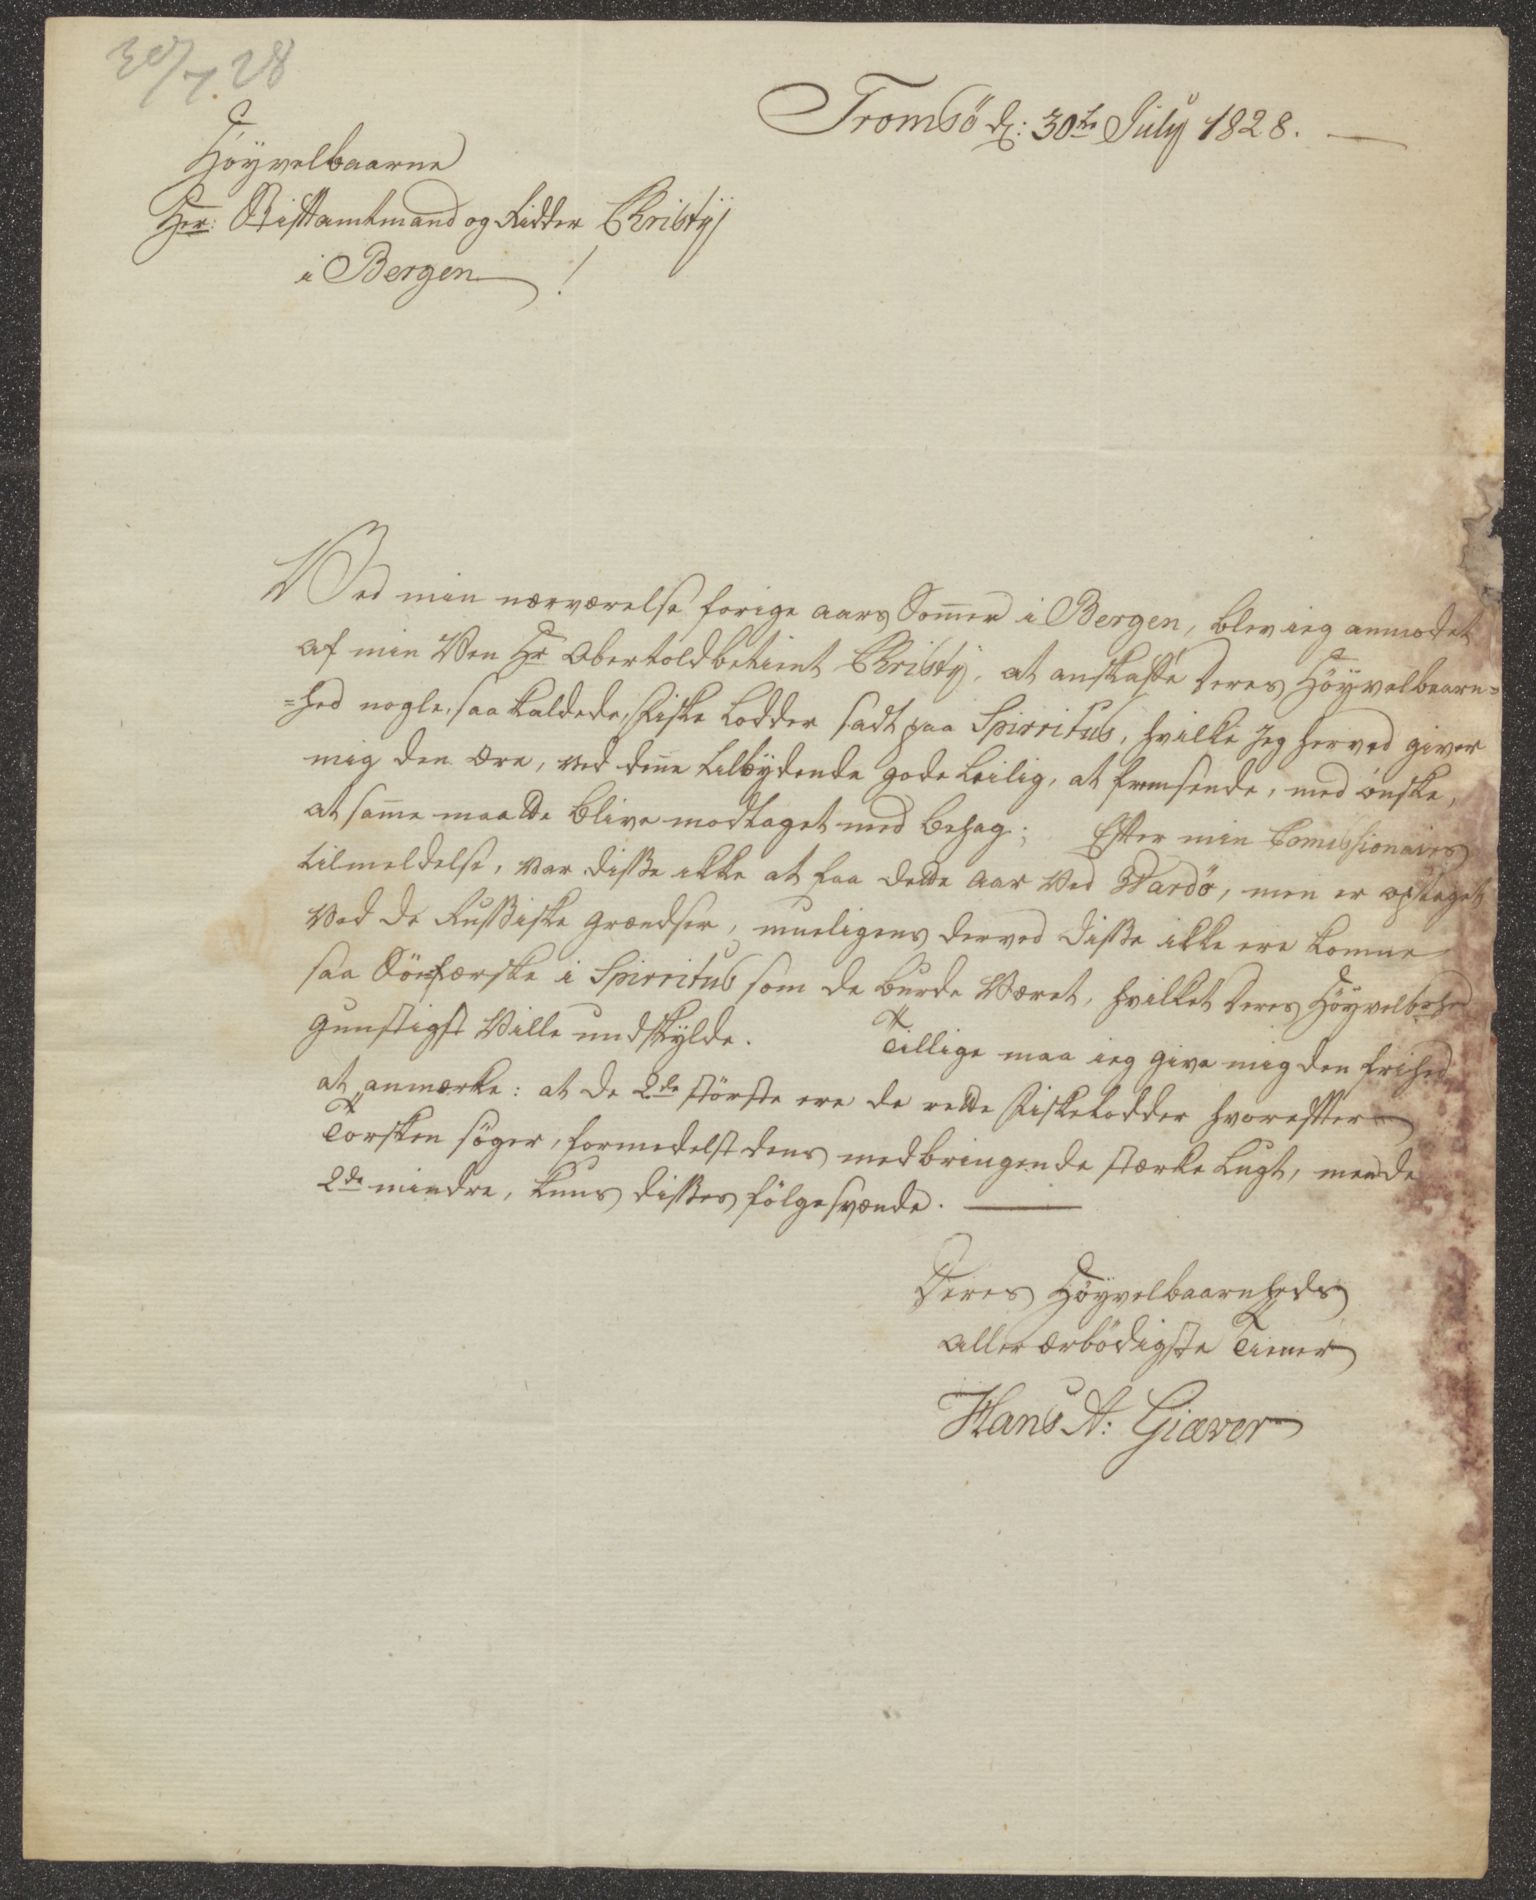 30/7.28
Tromsö d: 30te July 1828.
Höyvelbaarne
Herr: Stiftamtmand og Ridder Christÿ
i Bergen !
Ved min nærværelse forige aars Som̄er i Bergen, blev ieg anmodet
af min Ven Hr Obertoldbetient Christÿ, at anskaffe Deres Höyvelbaarn=
=hed nogle, saa kaldede, Fiske Lodder sadt paa Spirritus, hvilke Jeg herved giver
mig den Ære, ved den̄e tilbydende gode Leilig, at fremsende, med ønske,
at sam̄e maatte blive modtaget med behag; Efter min Comissionairs
tilmeldelse, var disse ikke at faa dette Aar ved Wardö, men er optaget
ved de Russiske Grændser, mueligens derved disse ikke ere komne
saa Sönfærske i Spirritus som de burde Været, hvilket Deres Höyvelbrhed
gunstigst Ville undskylde. Tillige maa ieg give mig den frihed
at anmærke: at de 2de störste ere de rette Fiskelodder hvorefter
Torsken söger, formedelst dens medbringende stærke Lugt, men de
2de mindre, kuns disses fölgesvende.
Deres Höyvelbaarnheds
aller ærbödigste Tiener
Hans A: Giæver